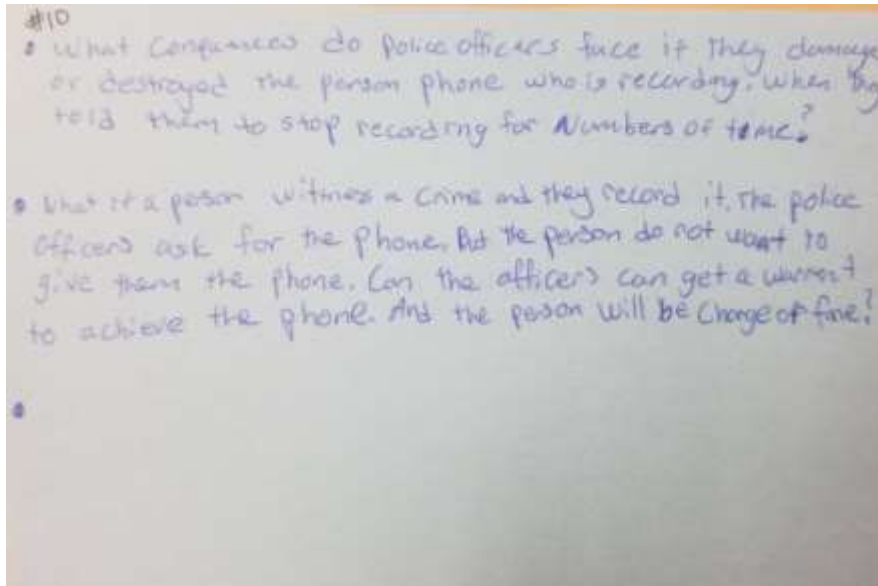 #10
• What Conquences do Police officers face if they damage
or destroyed the person phone who is recording. When they
told them to stop recording for Numbers of time?
• What if a person witness a Crime and they record it. The police
Officers ask for the Phone. But the person do not want to
give them the phone. Can the officers can get a warrent
to achieve the phone. And the person will be Charge of fine?
•